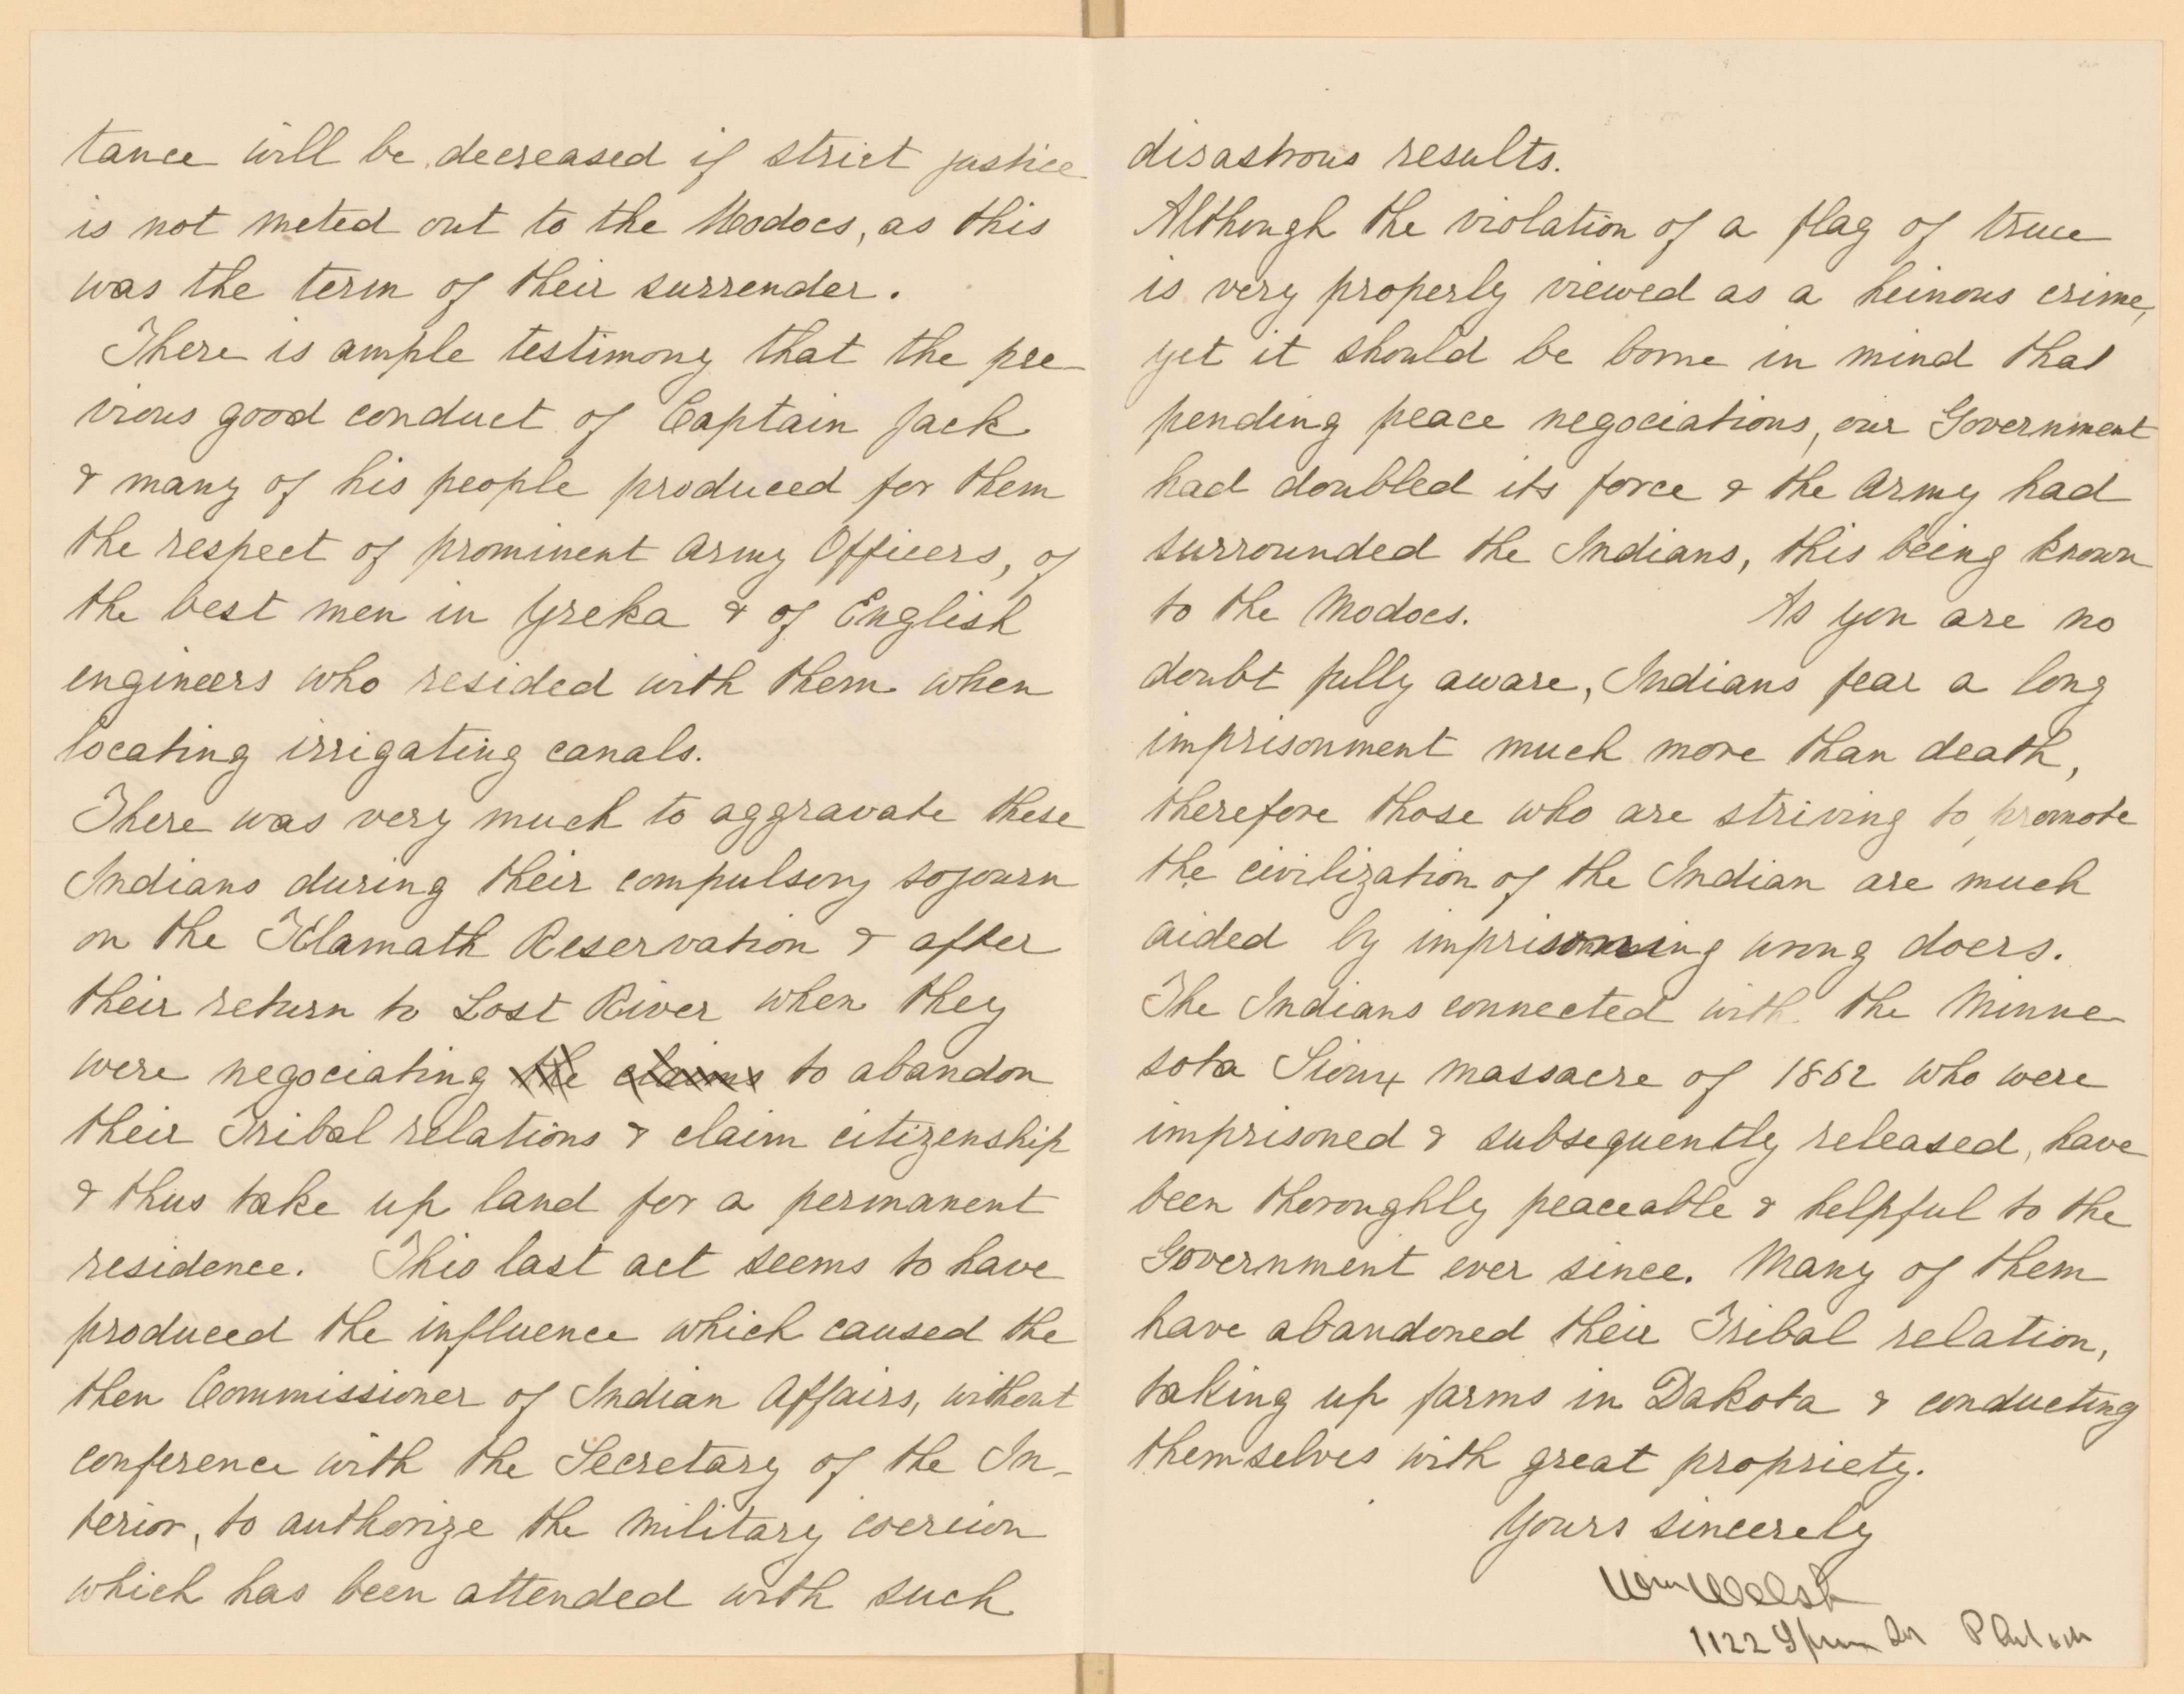 tance will be decreased if strict justice
is not meted out to the Modocs, as this
was the term of their surrender.
There is ample testimony that the pre-
vious good conduct of Captain Jack
& many of his people produced for them
the respect of prominent Army Officers, of
the best men in Yreka & of English
engineers who resided with them when
locating irrigating canals.
There was very much to aggravate these
Indians during their compulsory sojourn
on the Klamath Reservation & after
their return to Lost River when they
were negociating the claims to abandon
their Tribal relations & claim citizenship
& thus take up land for a permanent
residence. This last act seems to have
produced the influence which caused the
then Commissioner of Indian Affairs, without
conference with the Secretary of the In-
terior, to authorize the military coercion
which has been attended with such
disastrous results.
Although the violation of a flag of truce
is very properly viewed as a heinous crime,
yet it should be borne in mind that
pending peace negociations, our Government
had doubled its force & the Army had
surrounded the Indians, this being known
to the Modocs. As you are no
doubt fully aware, Indians fear a long
imprisonment much more than death,
therefore those who are striving to promote
the civilization of the Indian are much
aided by imprisoning wrong doers.
The Indians connected with the Minne-
sota Sioux massacre of 1862 who were
imprisoned & subsequently released, have
been thoroughly peaceable & helpful to the
Government ever since. Many of them
have abandoned their Tribal relation,
taking up farms in Dakota & conducting
themselves with great propriety.
Yours sincerely
Wm Welsh
1122